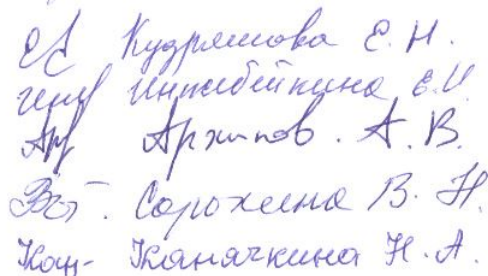 Кудряшова Е. Н.
Инжебейкина Е. И.
Архипов. А. В.
Сорокина В. Н.
Каначкина Н. А.